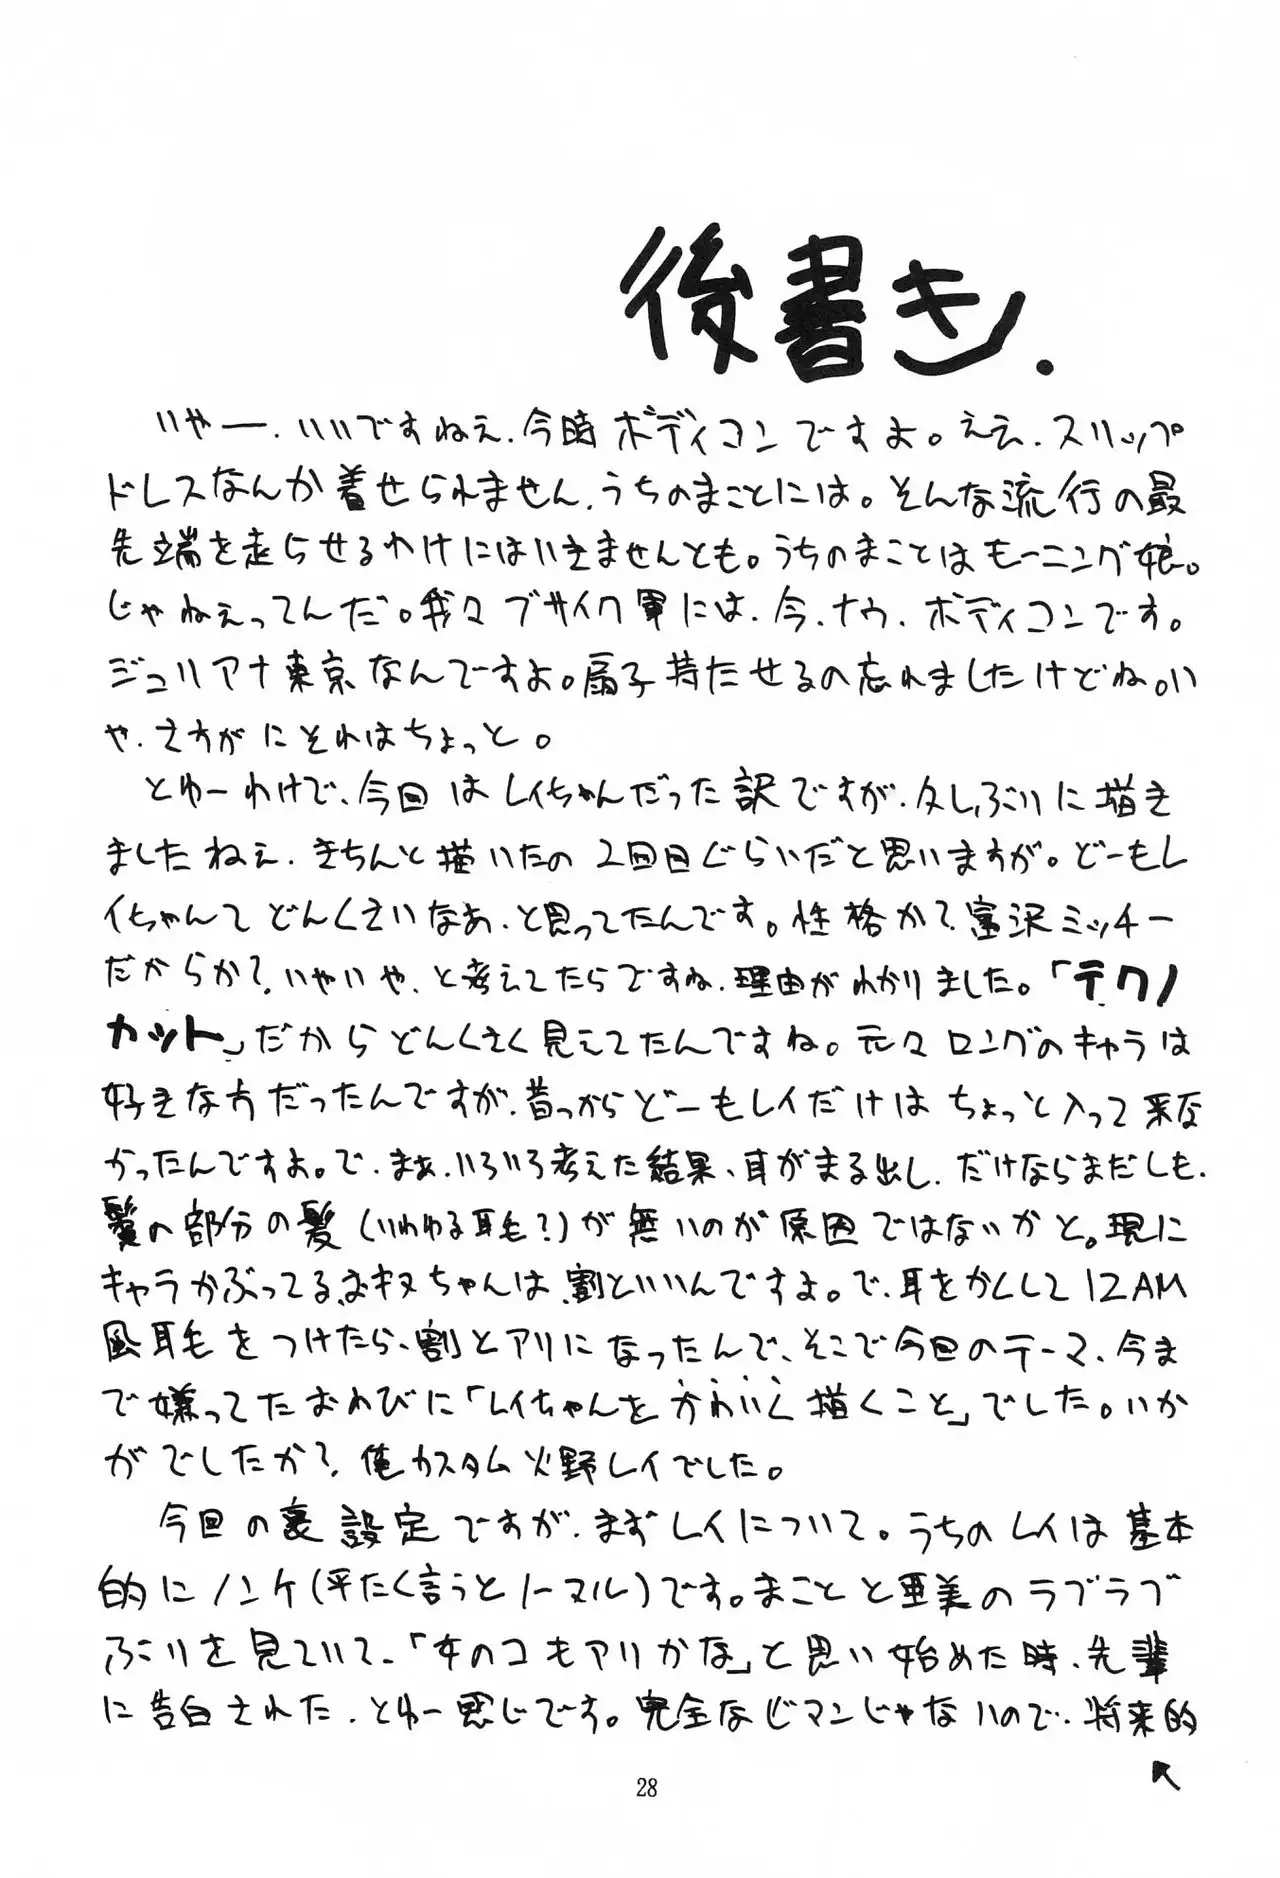 後書き.
いやー.いいですねえ.今時ボディコンですよ。ええ.スリップ
ドレスなんか着せられません.うちのまことには。そんな流行の最
先端を走らせるわけにはいきませんとも。うちのまことはモーニング娘。
じゃねぇってんだ。我々ブサイク軍には.今.ナウ.ボディコンです。
ジュリアナ東京なんですよ。扇子持たせるの忘れましたけどね。い
や.さすがにそれはちょっと。
とゆーわけで、今回はレイちゃんだった訳ですが.久しぶりに描き
ましたねぇ.きちんと描いたの2回目ぐらいだと思いますが。どーもレ
イちゃんてどんくさいなあ.と思ってたんです。性格か?富沢ミッチー
だからか?いやいや.と考えてたらですね.理由がわかりました。「テクノ
カット」だからどんくさく見えてたんですね。元々ロングのキャラは
好きな方だったんですが.昔っからどーもレイだけはちょっと入って来な
かったんですよ。で.まぁ.いろいろ考えた結果、耳がまる出し.だけならまだしも.
鬢の部分の髪(いわゆる耳毛?)が無いのが原因ではないかと。現に
キャラかぶってるおキヌちゃんは.割といいんですよ。で.耳をかくして12AM
風耳毛をつけたら、割とアリになったんで、そこで今回のテーマ、今ま
で嫌ってたおわびに「レイちゃんをかわいく描くこと」でした。いか
がでしたか?俺カスタム火野レイでした。
今回の裏設定ですが.まずレイについて。うちのレイは基本
的にノンケ(平たく言うとノーマル)です。まことと亜美のラブラブ
ぶりを見ていて、「女のコもアリかな」と思い始めた時、先輩
に告白された.とゆー感じです。完全なビアンじゃないので.将来的
28